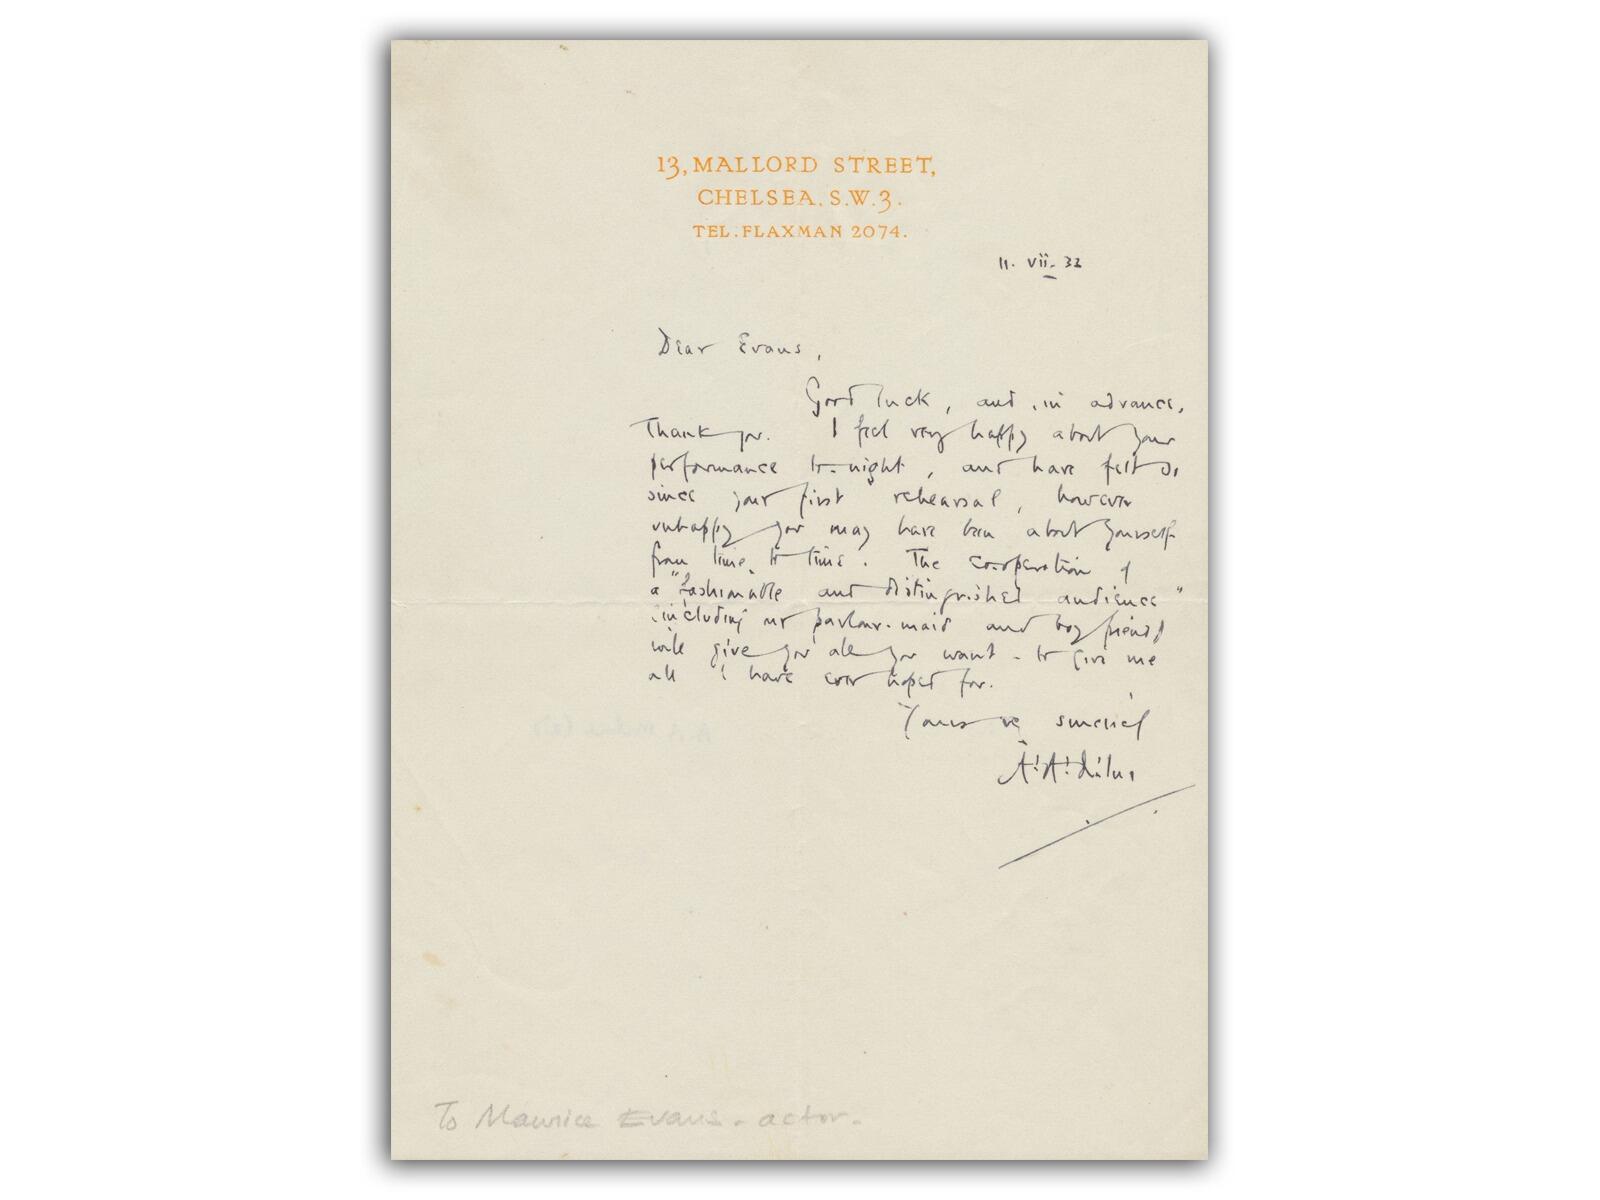 13, MALLORD STREET,
CHELSEA, S.W.3.
TEL. FLAXMAN 2074.
11. vii. 32
Dear Evans,
Good luck, and, in advance,
Thank you. I feel very happy about your
performance to-night, and have felt so
since your first rehearsal, however
unhappy you may have been about yourself
from time to time. The co-operation of
a "fashionable and distinguished audience"
including our parlour-maid and boy friend
will give you all you want - to give me
all I have ever hoped for.
Yours v sincerely
A. A. Milne
To Maurice Evans - actor.